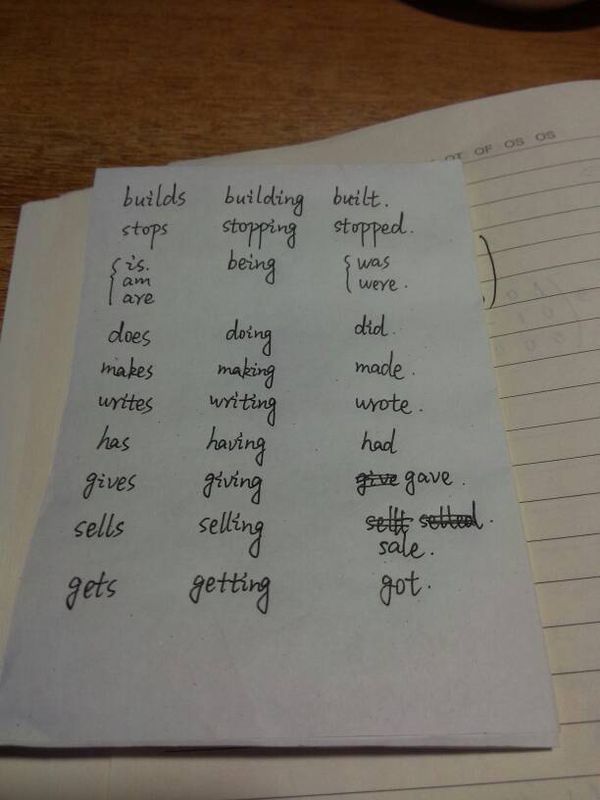 OT OF OS OS
builds building built.
stops stopping stopped.
is. being was
am were.
are
does doing did.
makes making made.
writes writing wrote.
has having had
gives giving give gave.
sells selling sellt selled.
sale.
gets getting got.